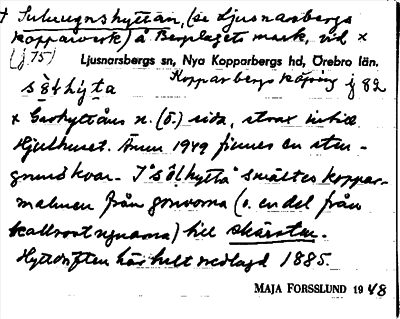 + Suluugnshyttan, (se Ljusnarsbergs
kopparverk) å Bergslagets mark, vid x
(j 75) Ljusnarsbergs sn, Nya Kopparbergs hd, Örebro län.
Kopparbergs köping j 82
x Garhyttåns n. (ö.) sida, strax intill
Hjulhuset. Ännu 1949 finnes en sten-
grund kvar. I "sòlhytta" smältes koppar-
malmen från gruvorna (o. en del från
kallrostugnarna) till skärsten.
Hyttdriften här helt nedlagd 1885.
MAJA FORSSLUND 1948